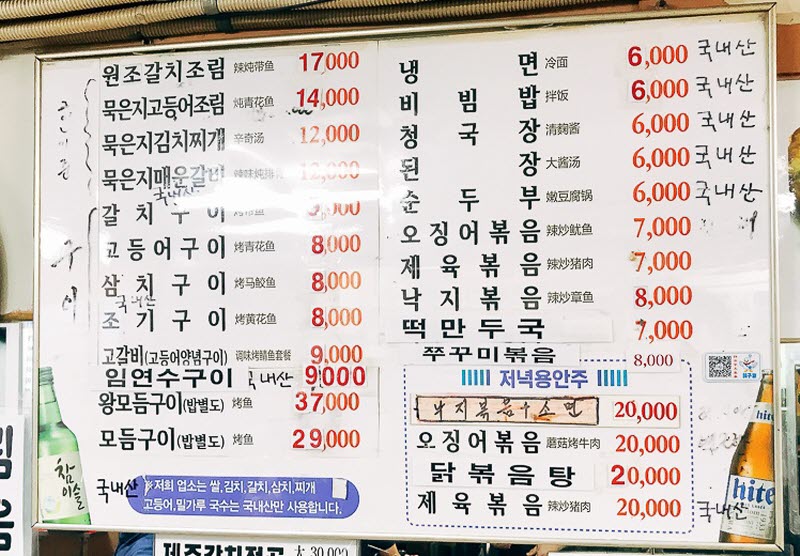 원조갈치조림 辣炖带鱼 17,000
묵은지고등어조림 炖青花鱼 14,000
묵은지김치찌개 辛奇汤 12,000
묵은지매운갈비 12,000
국내산
갈치구이 9,000
고등어구이 烤青花鱼 8,000
삼치구이 烤马鲛鱼 8,000
국내산
조기구이 烤黄花鱼 8,000
고갈비(고등어양념구이) 调味烤鲭鱼套餐 9,000
임연수구이 국내산 9,000
왕모듬구이(밥별도) 烤鱼 37,000
모듬구이(밥별도) 烤鱼 29,000
구이
국내산
※저희 업소는 쌀,김치,갈치,삼치,찌개
고등어,밀가루 국수는 국내산만 사용합니다.
참이슬
냉면 冷面 6,000 국내산
비빔밥 拌饭 6,000 국내산
청국장 清麹酱 6,000 국내산
된장 大酱汤 6,000 국내산
순두부 嫩豆腐锅 6,000 국내산
오징어볶음 辣炒鱿鱼 7,000
제육볶음 辣炒猪肉 7,000
낙지볶음 辣炒章鱼 8,000
떡만두국 7,000
쭈꾸미볶음 8,000
저녁용안주
낙지볶음+소면 20,000
오징어볶음 蘑菇烤牛肉 20,000
닭볶음탕 20,000
제육볶음 辣炒猪肉 20,000 국내산
hite
hite